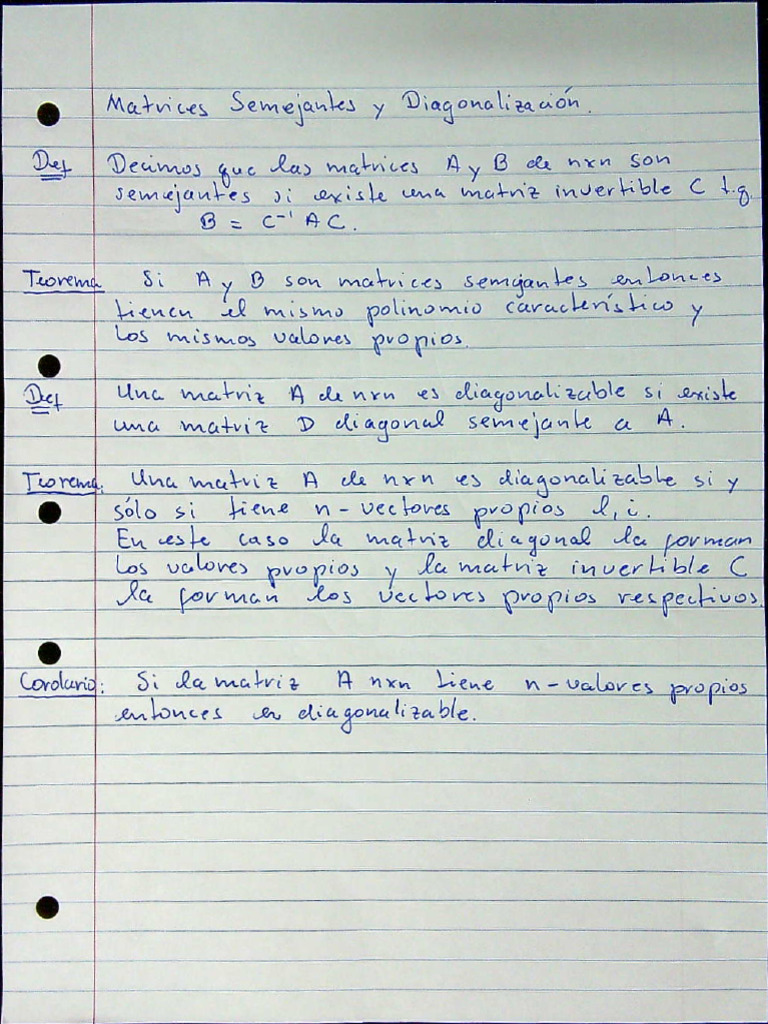 Matrices Semejantes y Diagonalización.
Def Decimos que las matrices A y B de nxn son
semejantes si existe una matriz invertible C t.q.
B = C⁻¹ A C.
Teorema Si A y B son matrices semejantes entonces
tienen el mismo polinomio característico y
los mismos valores propios.
Def Una matriz A de nxn es diagonalizable si existe
una matriz D diagonal semejante a A.
Teorema: Una matriz A de nxn es diagonalizable si y
sólo si tiene n-vectores propios l,i.
En este caso la matriz diagonal la forman
los valores propios y la matriz invertible C
la forman los vectores propios respectivos.
Corolario: Si la matriz A nxn tiene n-valores propios
entonces es diagonalizable.